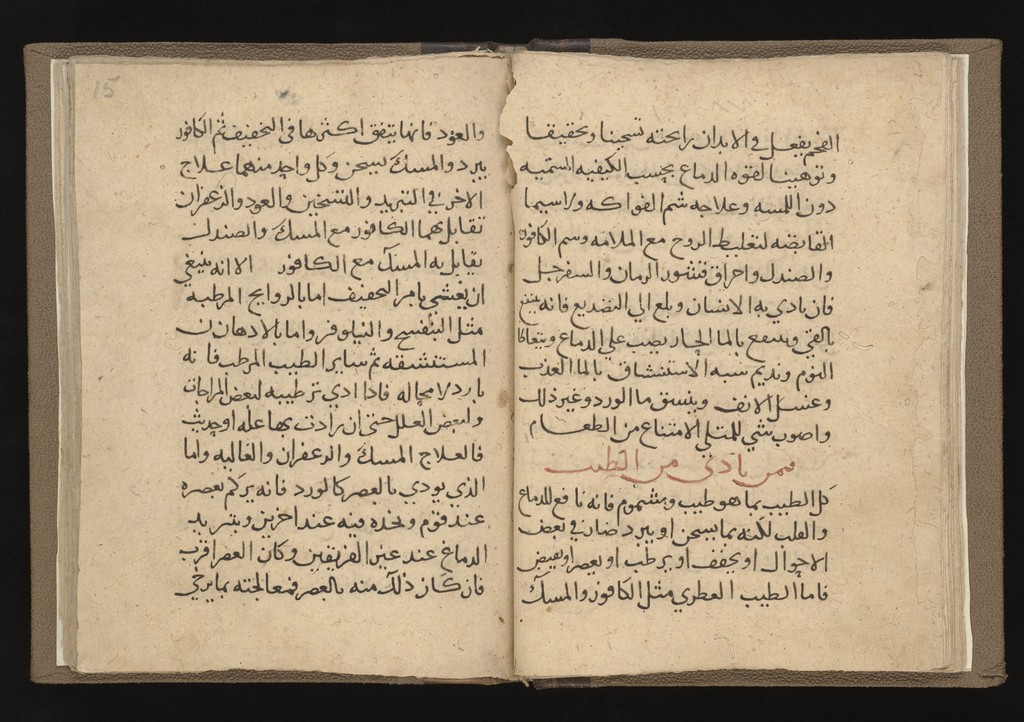 الفحم يفعل في الابدان برايحته تسخينا وتجفيفا
وتوهينا لقوه الدماغ بحسب الكيفيه الشميه
دون اللمسه وعلاجه شم الفواكه ولاسيما
القابضه لتغليظ الروح مع الملامه وسم الكافور
والصندل واحراق قشور الرمان والسفرجل
فان تادي به الانسان وبلغ الي التصديع فانه
بالقي وينتفع بالما الحار يصب علي الدماغ
النوم ونديم شبه الاستنشاق بالما العذب
وغسل الانف وينشق ما الورد وغير ذلك
واصوب شي للمتلي الامتناع من الطعام
فيمن تادي من الطيب
كل الطيب بما هو طيب ومشموم فانه نافع للدماغ
والقلب لكنه بما يسخن او يبرد ضار في بعض
الاحوال او يجفف او يرطب او يعصر او يقبض
فاما الطيب العطري مثل الكافور والمسك
15
والعود فانها يتفق اكثرها في التجفيف ثم الكافور
يبرد والمسك يسخن وكل واحد منهما علاج
الاخر في التبريد والتسخين والعود والزعفران
تقابل بهما الكافور مع المسك والصندل
يقابل به المسك مع الكافور الا انه ينبغي
ان يعتني بامر التجفيف اما بالروايح المرطبه
مثل البنفسج والنيلوفر واما بالادهان
المستنشقه ثم ساير الطيب المرطب فانه
بارد لا محاله فاذا ادي ترطيبه لبعض المزاجات
ولبعض العلل حتي ان زادت بها عله او حدثت
فالعلاج المسك والزعفران والغاليه واما
الذي يودي بالعصر كالورد فانه يزكم بعصره
عند قوم وتخده فيه عند اخرين وبتبريد
الدماغ عند عين الفريقين وكان العصر اقرب
فان كان ذلك منه بالعصر فمعالجته بما يرخي